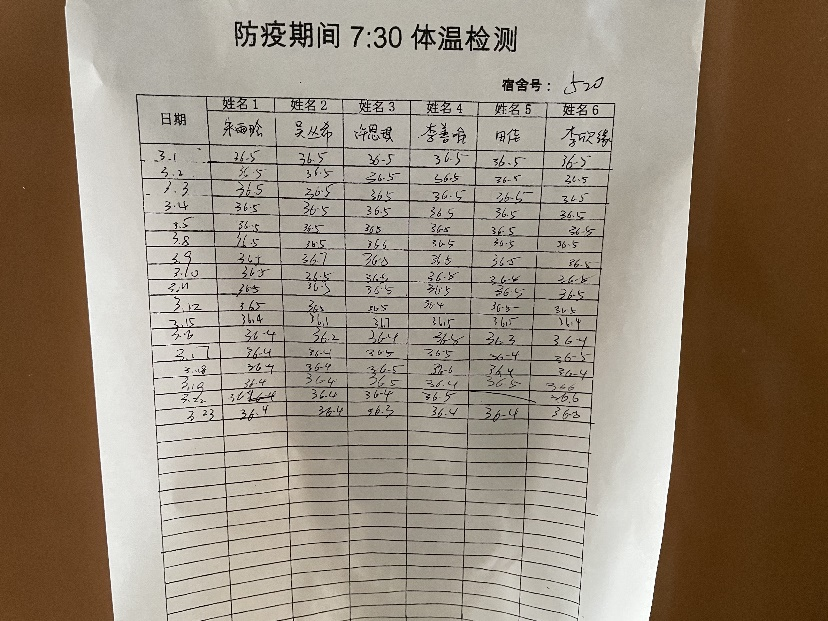 防疫期间 7:30 体温检测
宿舍号： 520
日期 姓名1 姓名2 姓名3 姓名4 姓名5 姓名6
宋雨晗 吴丛希 许思琪 李善 田佳 李欣缘
3.1 36.5 36.5 36.5 36.5 36.5 36.5
3.2 36.5 36.5 36.5 36.5 36.5 36.5
3.3 36.5 36.5 36.5 36.5 36.5 36.5
3.4 36.5 36.5 36.5 36.5 36.5 36.5
3.5 36.5 36.5 36.5 36.5 36.5 36.5
3.8 36.5 36.5 36.6 36.5 36.5 36.5
3.9 36.5 36.7 36.5 36.5 36.5 36.5
3.10 36.5 36.5 36.5 36.5 36.5 36.5
3.11 36.5 36.5 36.5 36.5 36.5 36.5
3.12 36.5 36.5 36.5 36.4 36.5 36.5
3.15 36.4 36.1 36.7 36.5 36.5 36.4
3.16 36.4 36.2 36.4 36.5 36.3 36.4
3.17 36.4 36.4 36.5 36.5 36.4 36.5
3.18 36.4 36.4 36.5 36.6 36.4 36.4
3.19 36.4 36.4 36.5 36.4 36.5 36.6
3.22 36.4 36.4 36.5 36.6
3.23 36.4 36.4 36.3 36.4 36.4 36.3